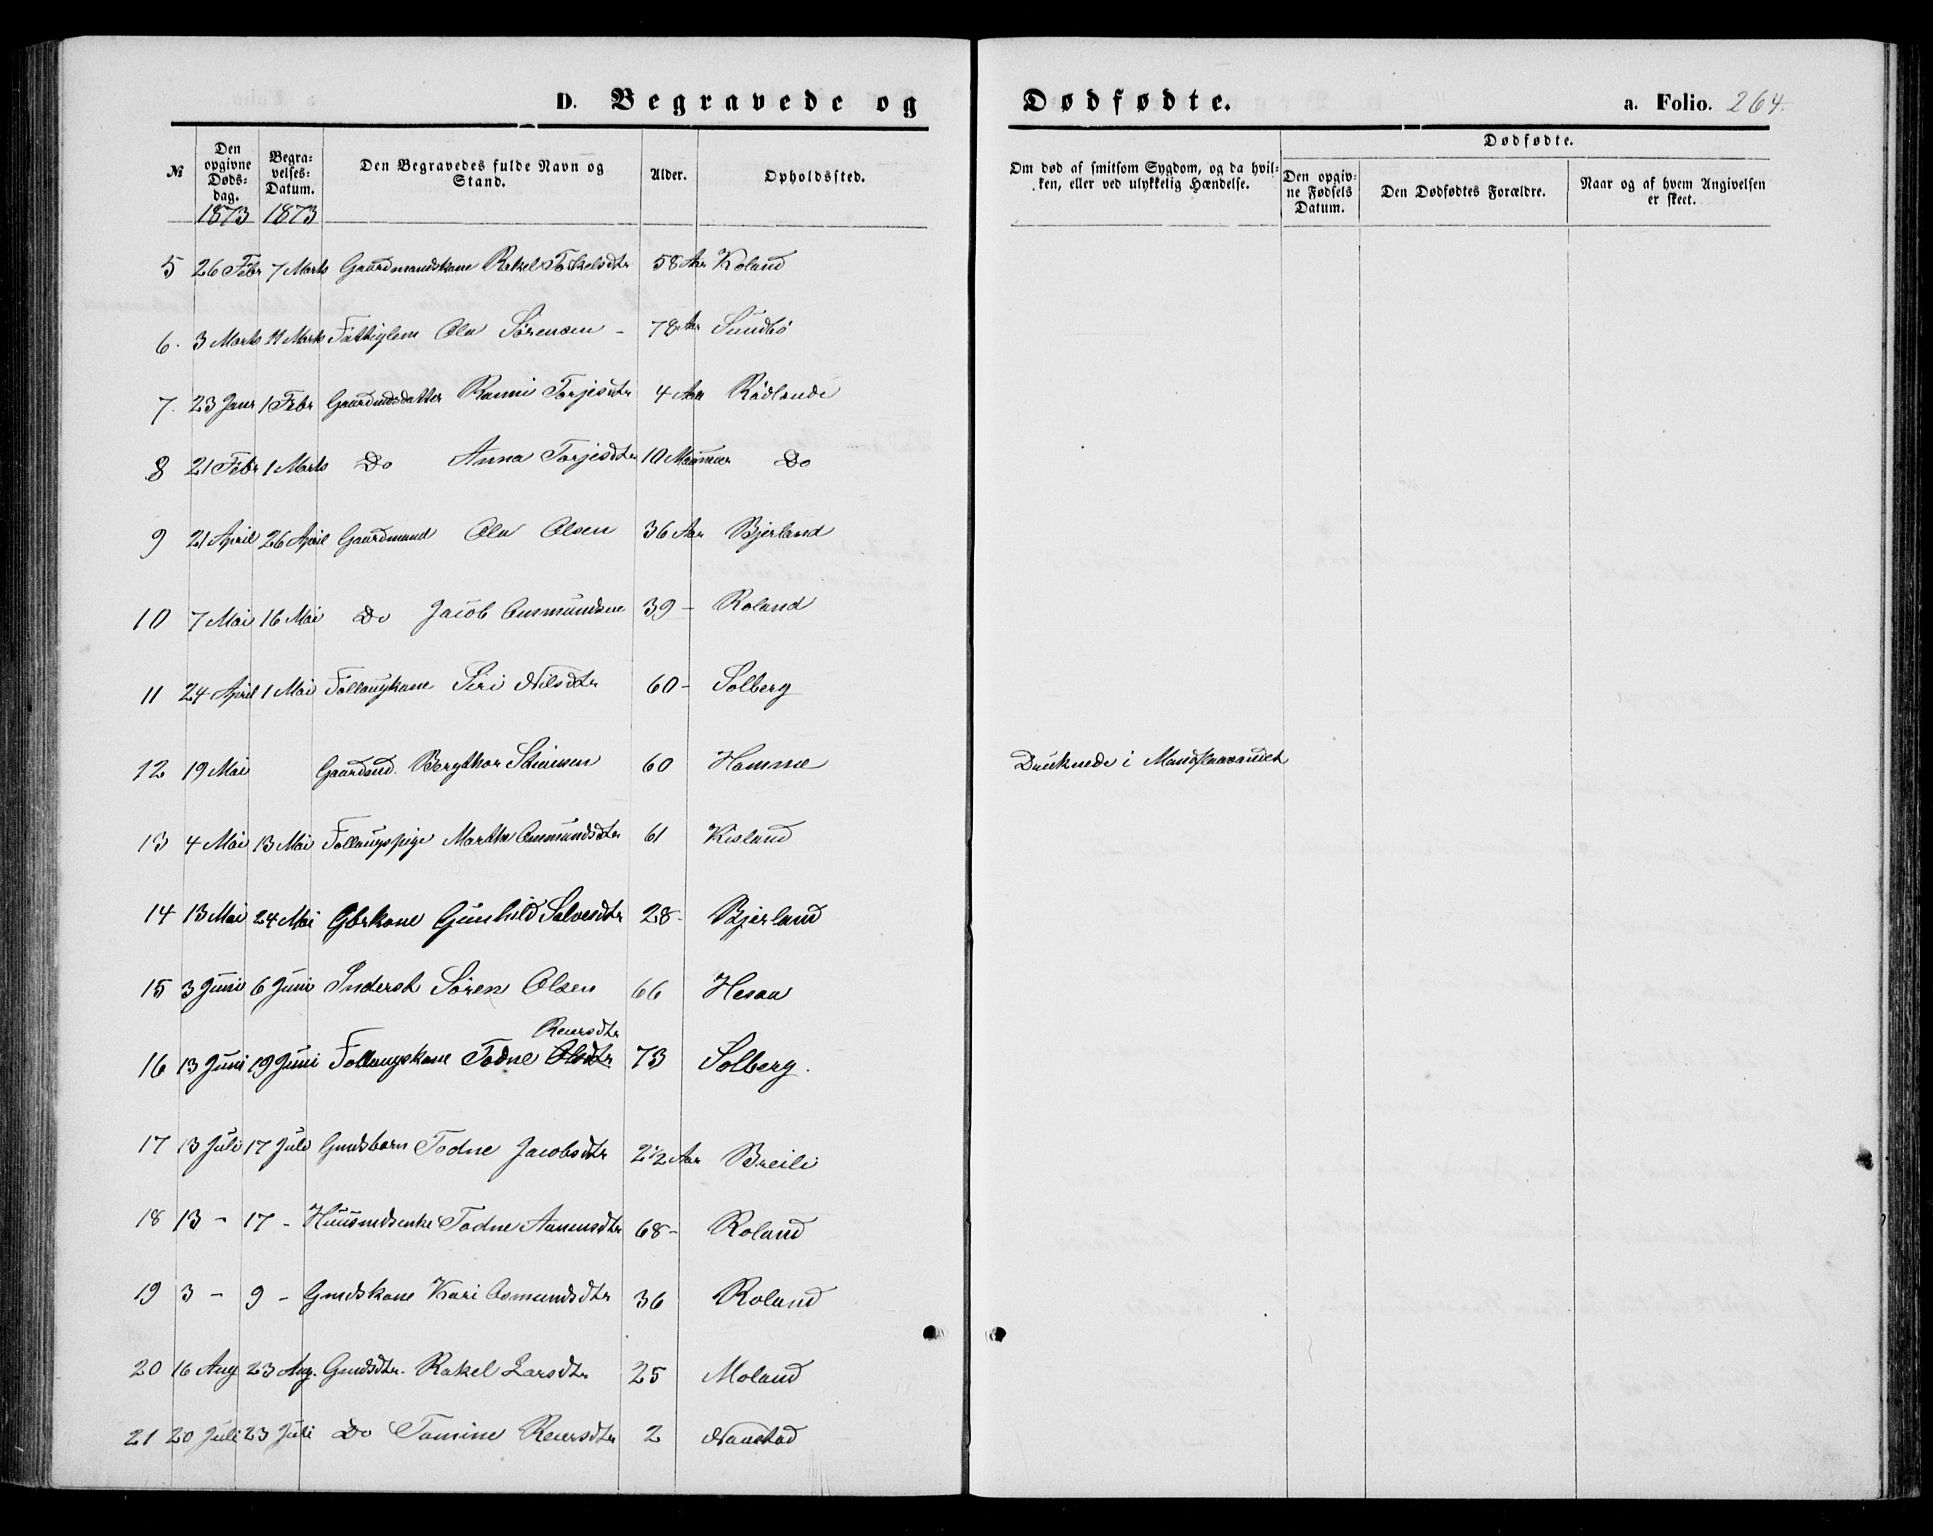 D. Begravede og Dødfødte. a. Folio. 264.
№ Den opgivne Døds-dag. 1873 Begra-velses-Datum. 1873 Den Begravedes fulde Navn og Stand. Alder. Opholdssted. Om død af smitsom Sygdom, og da hvil-ken, eller ved ulykkelig Hændelse. Dødfødte.
Den opgiv-ne Fødsels Datum. Den Dødfødtes Forældre. Naar og af hvem Angivelsen er skeet.
5 26 Febr 7 Marts Gaardmandskone Rakel Torkelsdtr 58 Aar Roland
6. 3 Marts 11 Marts Fattiglem Ola Sørensen - 78 Aar Sundbö
7. 23 Janr 1 Febr Gaardmdsdatter Ranni Torjesdtr 4 Aar Rödlande
8 21 Febr 1 Marts Do Anna Torjesdtr 10 Maaneder Do
9 21 April 26 April Gaardmand Ola Olsen 36 Aar Bjerland
10 7 Mai 16 Mai Do Jacob Aamundsen 39 - Roland
11 24 April 1 Mai Follaugkone Siri Nilsdtr 60 - Solberg
12 19 Mai Gaardmd. Bergthor Stiensen 60 Homme Druknede i Mandflaavandet
13 4 Mai 13 Mai Follaugspige Marthe Aamundsdtr 61 Kisland
14 13 Mai 24 Mai Gbrkone Gunhild Salvesdtr 28 - Bjerland
15 3 Juni 6 Juni Inderst Sören Olsen 66 Hesaa
Reiersdtr
16 13 Juni 19 Juni Follaugskone Todne Olsdtr 73 Solberg.
17 13 Juli 17 Juli Gmdsbarn Todne Jacobsdtr 2 1/2 Aar Breili
18 13 - 17 - Huusmdsenke Todne Aanensdtr 68 - Roland
19 3 - 9 - Gmdskone Kari Osmundsdtr 36 Roland
20 16 Aug 23 Aug. Gmdsdtr. Rakel Larsdtr 25 Moland
21 20 Juli 23 Juli Do Tomine Reiersdtr 2 Navestad